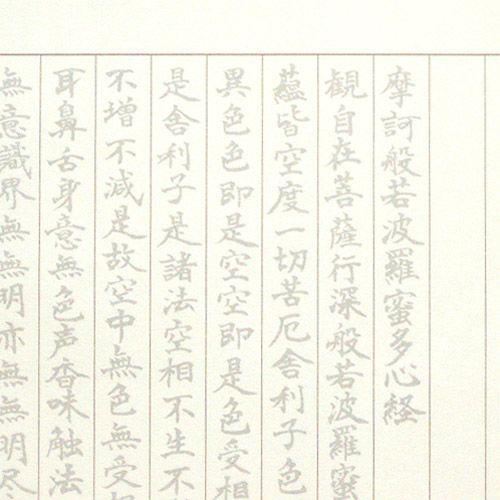 摩訶般若波羅蜜多心経
観自在菩薩行深般若波羅蜜
蘊皆空度一切苦厄舎利子色
異色色即是空空即是色受相
是舎利子是諸法空相不生不
不増不減是故空中無色無受
耳鼻舌身意無色声香味触法
無意識界無無明亦無無明尽